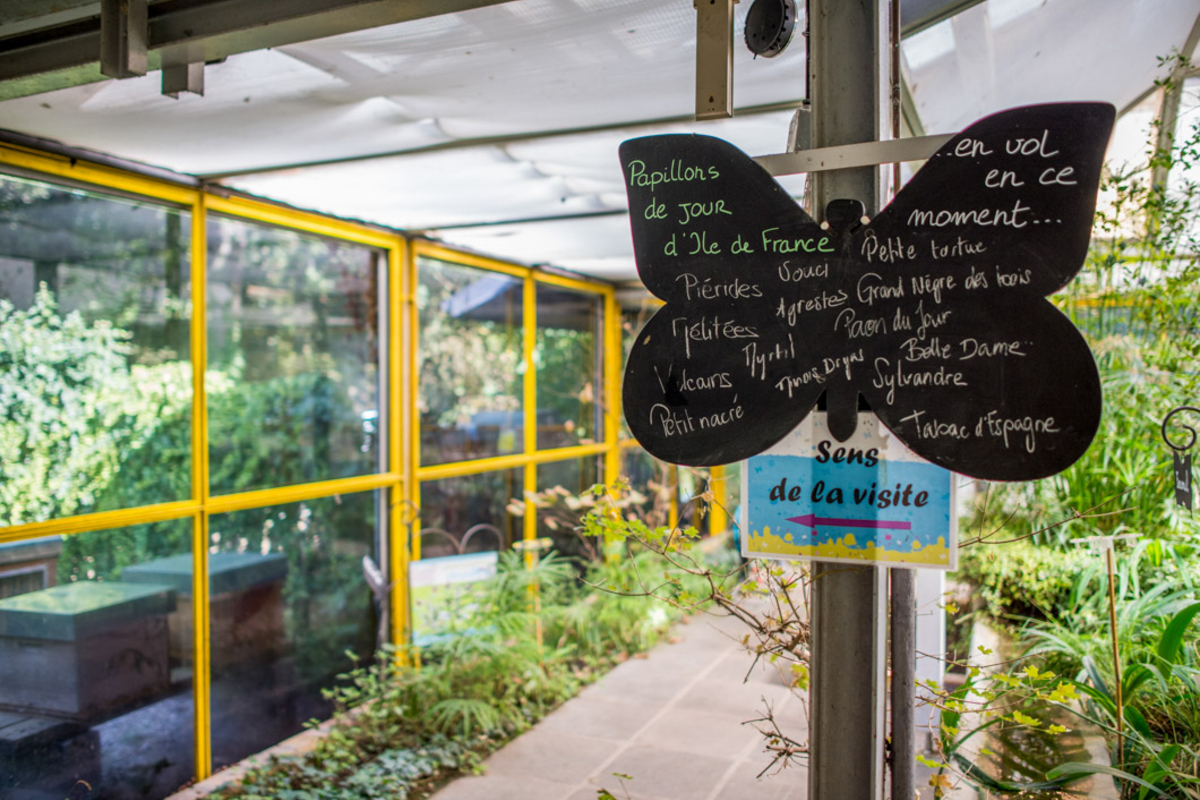 Papillons
de jour
d'Ile de France
...en vol
en ce
moment...
Piérides
Souci
Agrestes
Mélitées
Myrtil
Minois Dryas
Vulcains
Petit nacré
Petite tortue
Grand Nègre des bois
Paon du Jour
Belle Dame
Sylvandre
Tabac d'Espagne
Sens
de la visite